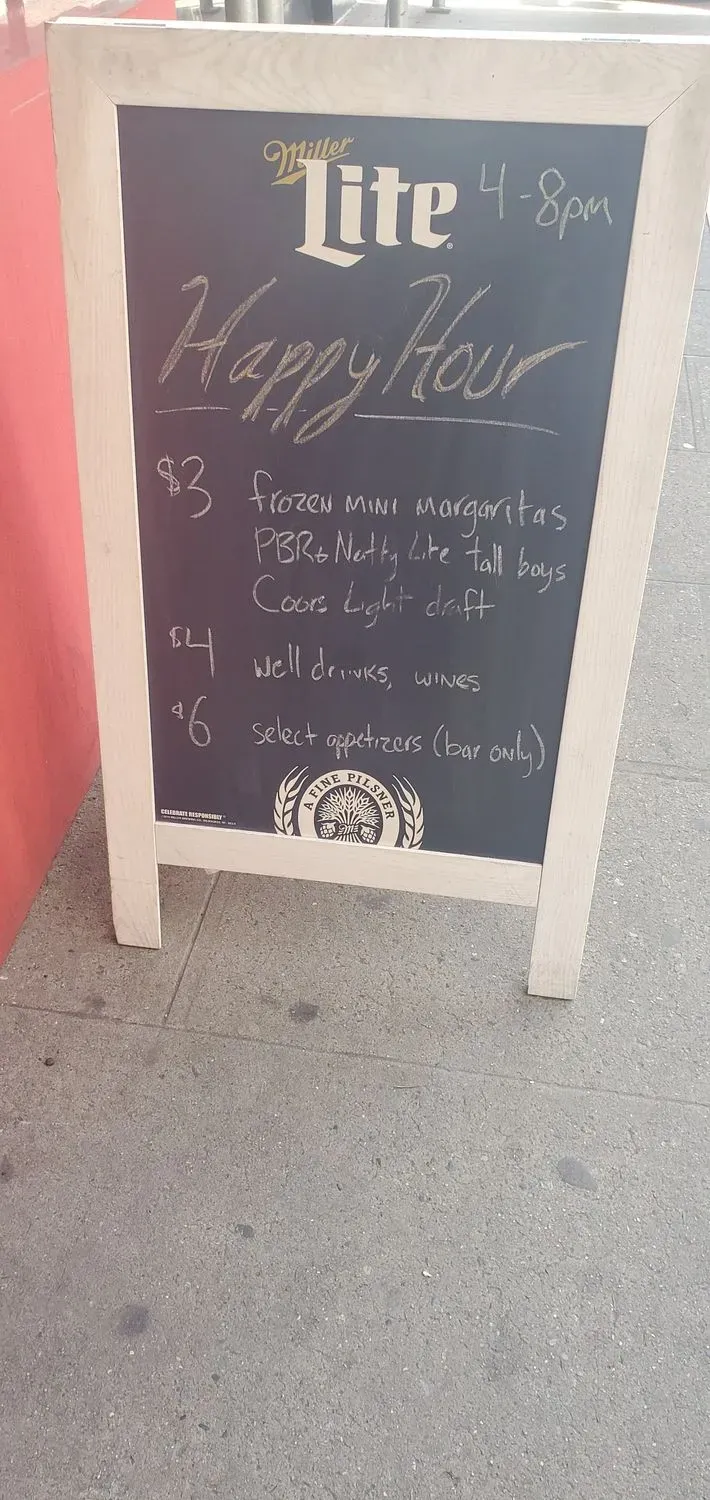 Miller
Lite 4-8pm
Happy Hour
$3 frozen mini margaritas
PBR & Natty Lite tall boys
Coors Light draft
$4 well drinks, wines
$6 select appetizers (bar only)
A FINE PILSNER
CELEBRATE RESPONSIBLY®